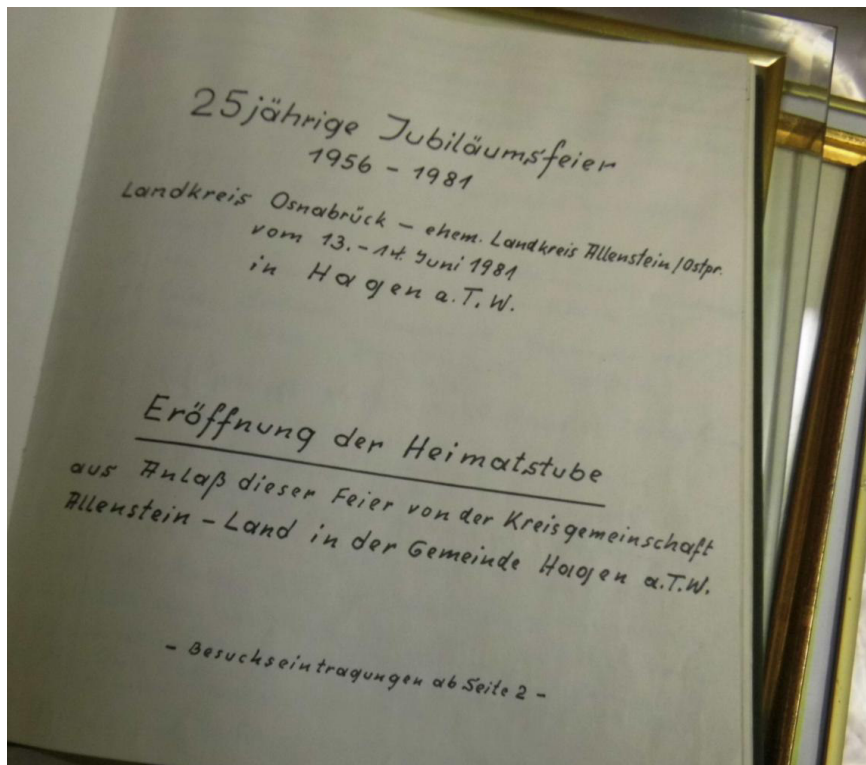 25jährige Jubiläumsfeier
1956 - 1981
Landkreis Osnabrück - ehem. Landkreis Allenstein/Ostpr.
vom 13. - 14. Juni 1981
in Hagen a.T.W.
Eröffnung der Heimatstube
aus Anlaß dieser Feier von der Kreisgemeinschaft
Allenstein - Land in der Gemeinde Hagen a.T.W.
- Besuchseintragungen ab Seite 2 -